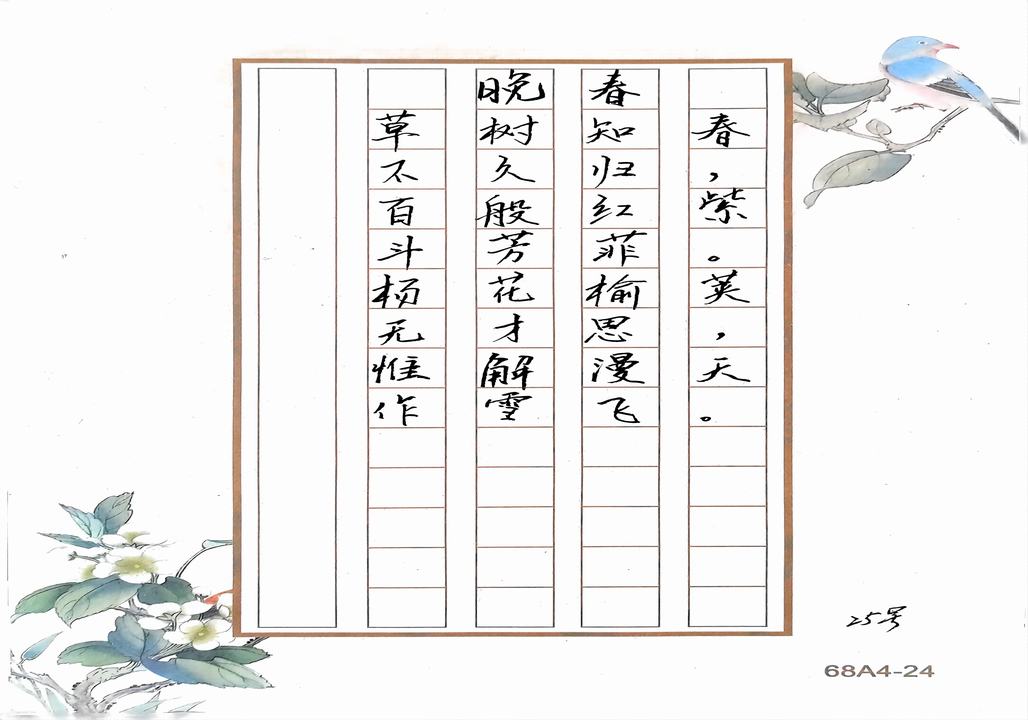 晚春
草树知春
不久归，
百般红紫
斗芳菲。
杨花榆荚
无才思，
惟解漫天
作雪飞。
25号
68A4-24